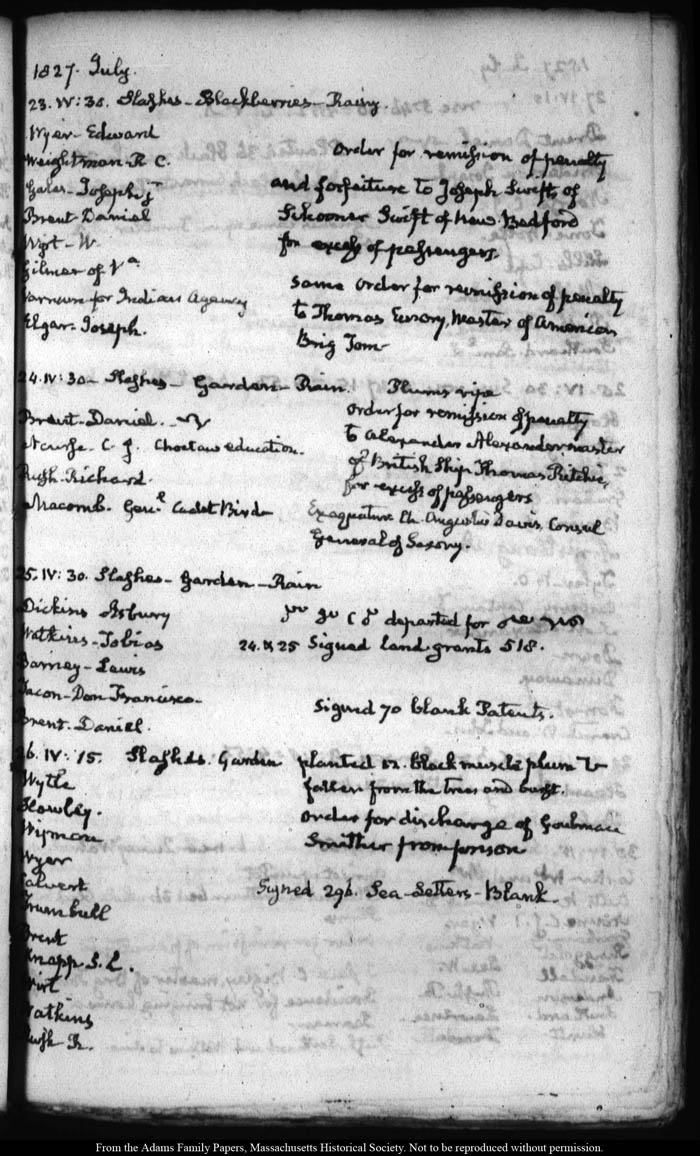 1827. July.
23. IV: 30. Slashes - Blackberries - Rainy.
Wyer - Edward
Weightman - R. C.
Gales - Joseph jr
Brent - Daniel
Wirt - W.
Gilmer of Va
Varnum for Indian Agency
Elgar - Joseph.
Order for remission of penalty
and forfeiture to Joseph Swift of
Schooner Swift of New Bedford
for excess of passengers.
Same order for remission of penalty
to Thomas Master of American
Brig Tom
24. IV: 30 - Slashes - Garden - Rain. Plums ripe
Brent - Daniel.
Nourse - C. J. Choctaw education.
Rush - Richard.
Macomb. Genl. Cadet Bird
Order for remission of penalty
to Alexander Alexander master
of British Ship Thomas Ritchie,
for excess of passengers
Exequatur Ch. Augustus Davis, Consul
General of Saxony.
25. IV: 30. Slashes - Garden - Rain
Dickins Asbury
Watkins - Tobias
Barney - Lewis
Tacon - Don Francisco -
Brent - Daniel.
departed for
24. & 25 Signed land grants 518.
Signed 70 blank Patents.
26. IV: 15. Slashes. Garden planted black muscle plum
fallen from the trees and burst.
Wytle
Slowley.
Wipman
Wyer
Calvert
Trumbull
Brent
Knapp S. L.
Wirt
Watkins
Rush R.
Order for discharge of
Smither from prison
Signed 296. Sea-Letters - Blank.
From the Adams Family Papers, Massachusetts Historical Society. Not to be reproduced without permission.